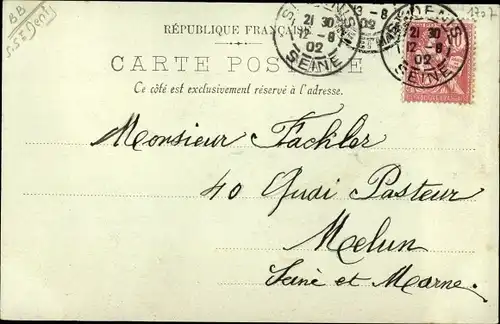 BB
S.S.E Denis
1707
RÉPUBLIQUE FRANÇAISE
CARTE POSTALE
Ce côté est exclusivement réservé à l'adresse.
ST DENIS
21 30
12 - 8
02
SEINE
3 - 8
02
ST DENIS
21 30
12 - 8
02
SEINE
Monsieur Fachler
40 Quai Pasteur
Melun
Seine et Marne.